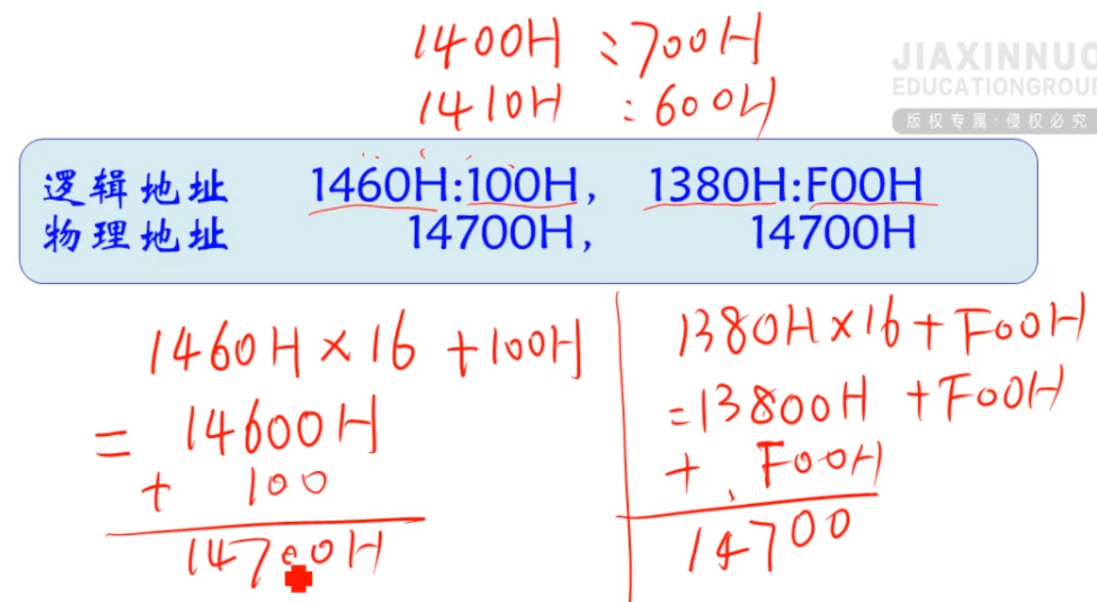 1400H :700H
1410H :600H
JIAXINNUO
EDUCATIONGROUP
版权专属·侵权必究
逻辑地址 1460H:100H, 1380H:F00H
物理地址 14700H, 14700H
1460H×16+100H
= 14600H
+ 100
14700H
1380H×16+F00H
=13800H +F00H
+ F00H
14700